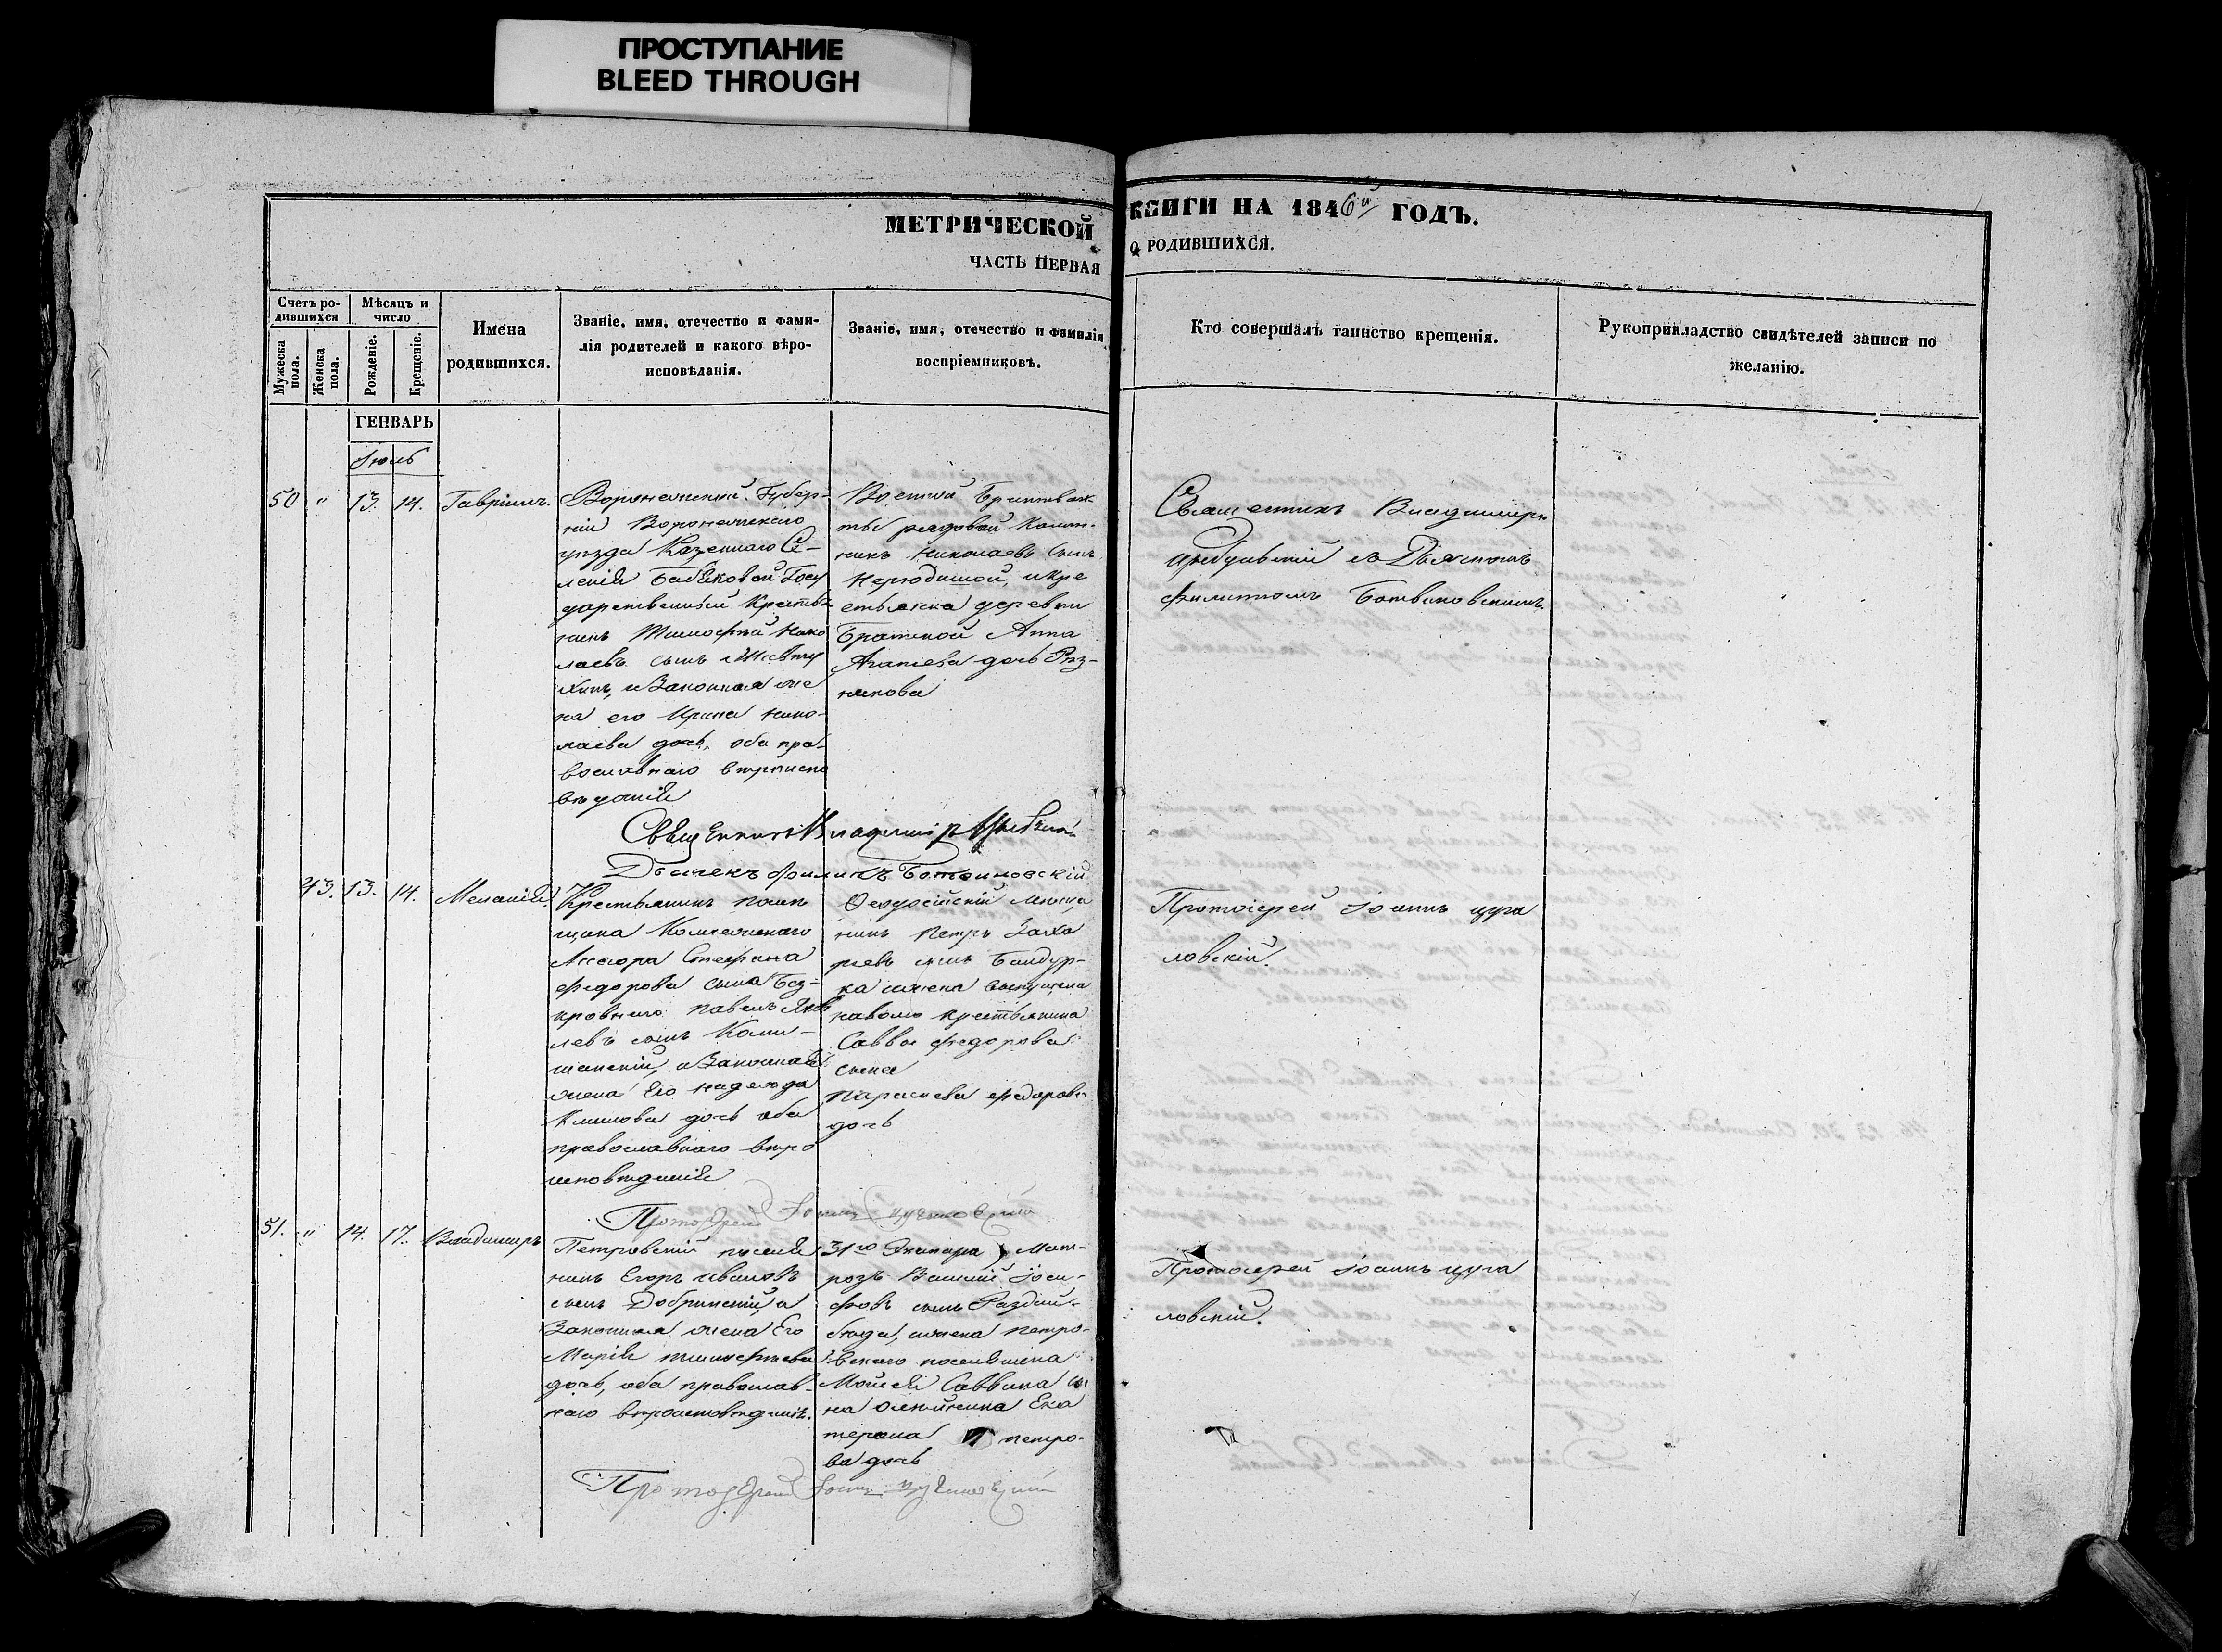 ПРОСТУПАНИЕ
BLEED THROUGH
МЕТРИЧЕСКОЙ КНИГИ НА 1846й ГОДЪ.
ЧАСТЬ ПЕРВАЯ О РОДИВШИХСЯ.
Счетъ ро-
дившихся
Мужеска
пола.
Женска
пола.
Мѣсяцъ и
число
Рожденіе.
Крещеніе.
Имена
родившихся.
Званіе, имя, отечество и фами-
лія родителей и какого вѣро-
исповѣданія.
Званіе, имя, отечество и фамилія
воспріемниковъ.
Кто совершалъ таинство крещенія.
Рукоприкладство свидѣтелей записи по
желанію.
ГЕНВАРЬ
Іюль
50 " 13. 14. Гавріилъ.
Воронежской Губер-
ніи Воронежскаго
уѣзда Казеннаго Се-
ленія Бабяковой Госу
дарственный Крестья
нинъ Тимофей Нико
лаевъ сынъ
и Законная же
на его Ирина Нико-
лаева дочь, оба пра-
вославнаго вѣроиспо
вѣданія
рядовой
никъ Николаевъ сынъ
икре
стьянка деревни
Братской Анна
дочь Рѣз-
никова
Священникъ Владимиръ
съ Дьячкомъ
Филиппомъ Ботвиновскимъ.
Священникъ Владиміръ
Дьячекъ Филипъ Ботвиновскій
43. 13. 14. Меланія.
Крестьянинъ помѣ
щика Коллежскаго
Ассесора Стефана
Федорова сына Без-
кровнаго Павелъ Яков
левъ сынъ Коли-
и Законная
жена Его Надежда
Климова дочь оба
православнаго вѣро
исповѣданія
Ѳеодосійскій мѣща
нинъ Петръ Заха
рьевъ сынъ Бандур-
ка ижена
наволю крестьянина
Саввы Федорова
сына
Параскева Федорова
дочь
Протоіерей Іоаннъ цуга
ловскій.
Протоіерей Іоаннъ
51. " 14. 17. Владимиръ
Петровскій поселя
нинъ Егоръ Ивановъ
сынъ Добринскій и
Законная жена Его
Марія Тимофѣева
дочь, оба православ-
наго вѣроисповѣданія.
31го Экипажа Мат-
розъ Василій Іоси-
фовъ сынъ
ижена Петро-
вскаго поселянина
Мойсея Саввина сы
на Олейника Ека
терина Петро-
ва дочь
Протоіерей Іоаннъ цуга
ловскій.
Протоіерей Іоаннъ